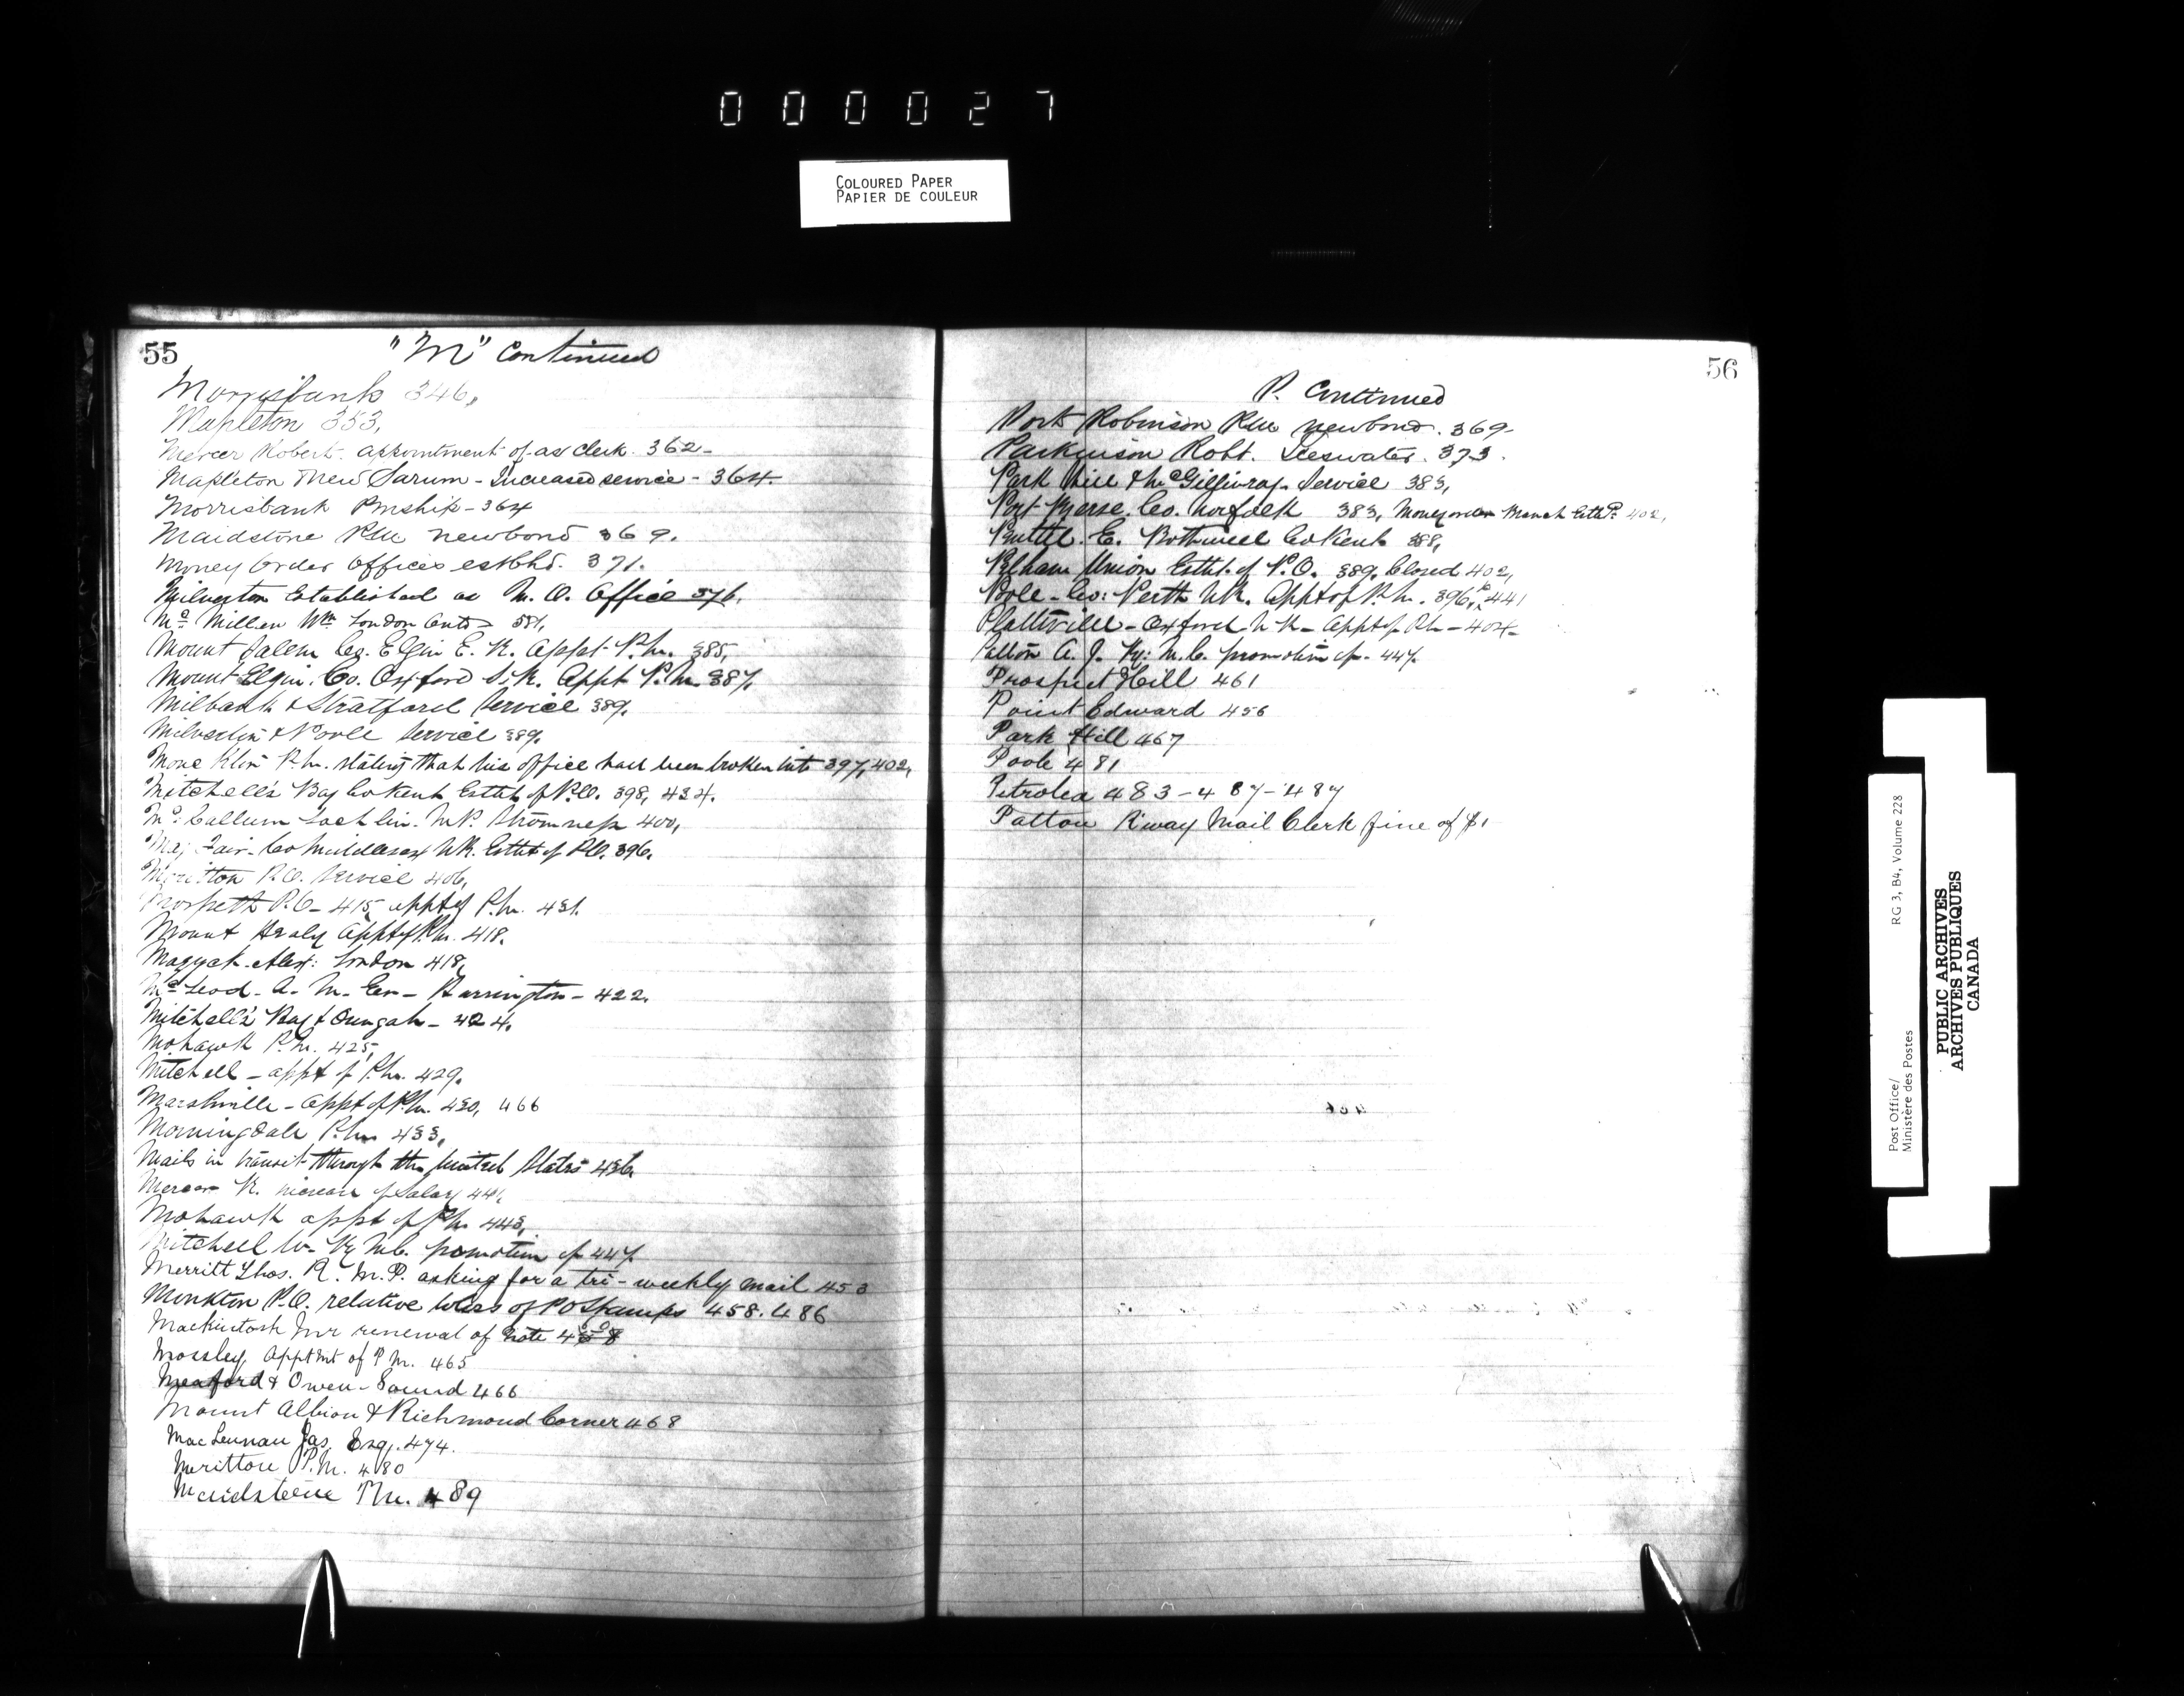 000027
COLOURED PAPER
PAPIER DE COULEUR
55
"M" Continued
Morrisbank 346,
Mapleton 353,
Mercer Robert appointment of as Clerk. 362-
Mapleton & New Sarum - Increased service - 364.
Morrisbank Pmship - 364
Maidstone P.M. new bond 369.
Money Order Offices estbhd. 371.
Milverton Established as M. O. Office 376.
Mc Millan Wm London Ont 381,
Mount Salem Co. Elgin E. R. Appt P.M. 385,
Mount Elgin. Co. Oxford S.R. Appt P.M. 387,
Milbank & Stratford Service 389.
Milverton & Poole Service 389.
P.M. stating that his office had been broken into 397, 402,
Mitchell's Bay Co Kent Estbt of P.O. 398, 434.
Mc Callum Lachlin. M.P. Stromness 400,
Fair - Co Middlesex N.R. Estbt of P.O. 396.
Merritton P.O. Service 406,
P.O - 415, appt of P.M. 431.
Mount Healy Appt of P.M. 418.
Alex: London 418,
Mc Leod - A. M. Harrington - 422.
Mitchell's Bay & Oungah - 424.
Mohawk P.M. 425,
Mitchell - appt of P.M. 429.
Marshville - Appt of P.M. 430, 466
Morningdale P.M. 433,
Mails in transit through the United States 436.
Mercer R. increase of Salary 441.
Mohawk appt of P.M. 443,
Mitchell W- Ry M.C. promotion of 447.
Merritt Thos. R. M.P. asking for a tri-weekly mail 453
Monkton P.O. relative to loss of P O Stamps 458. 486
Mackintosh renewal of note
Mossley, Apptmt of P M. 465
Meaford & Owen-Sound 466
Mount Albion & Richmond Corner 468
MacLennan Jas. Esq. 474.
Merritton P.M. 480
Maidstone P.M. 489
56
P. Continued
Port Robinson P.M. new bond. 369-
Parkinson Robt. Teeswater. 373.
Park Hill & McGillivray - Service 383,
Port Royal Co. Norfolk 383, Money order Branch Estbd 402,
E. Bothwell Co Kent 388,
Pelham Union Estbt of P.O. 389, Closed 402,
Poole - Co: Perth N.R. Appt of P.M. 396, 441
Plattsville - Oxford N R - Appt of P.M - 404-
Patton A. J. Ry: M.C. promotion of - 447.
Prospect Hill 461
Point Edward 456
Park Hill 467
Poole 481
Petrolea 483-487-487
Patton R'way Mail Clerk fine of $1
Post Office/
Ministère des Postes
RG 3, B4, Volume 228
PUBLIC ARCHIVES
ARCHIVES PUBLIQUES
CANADA